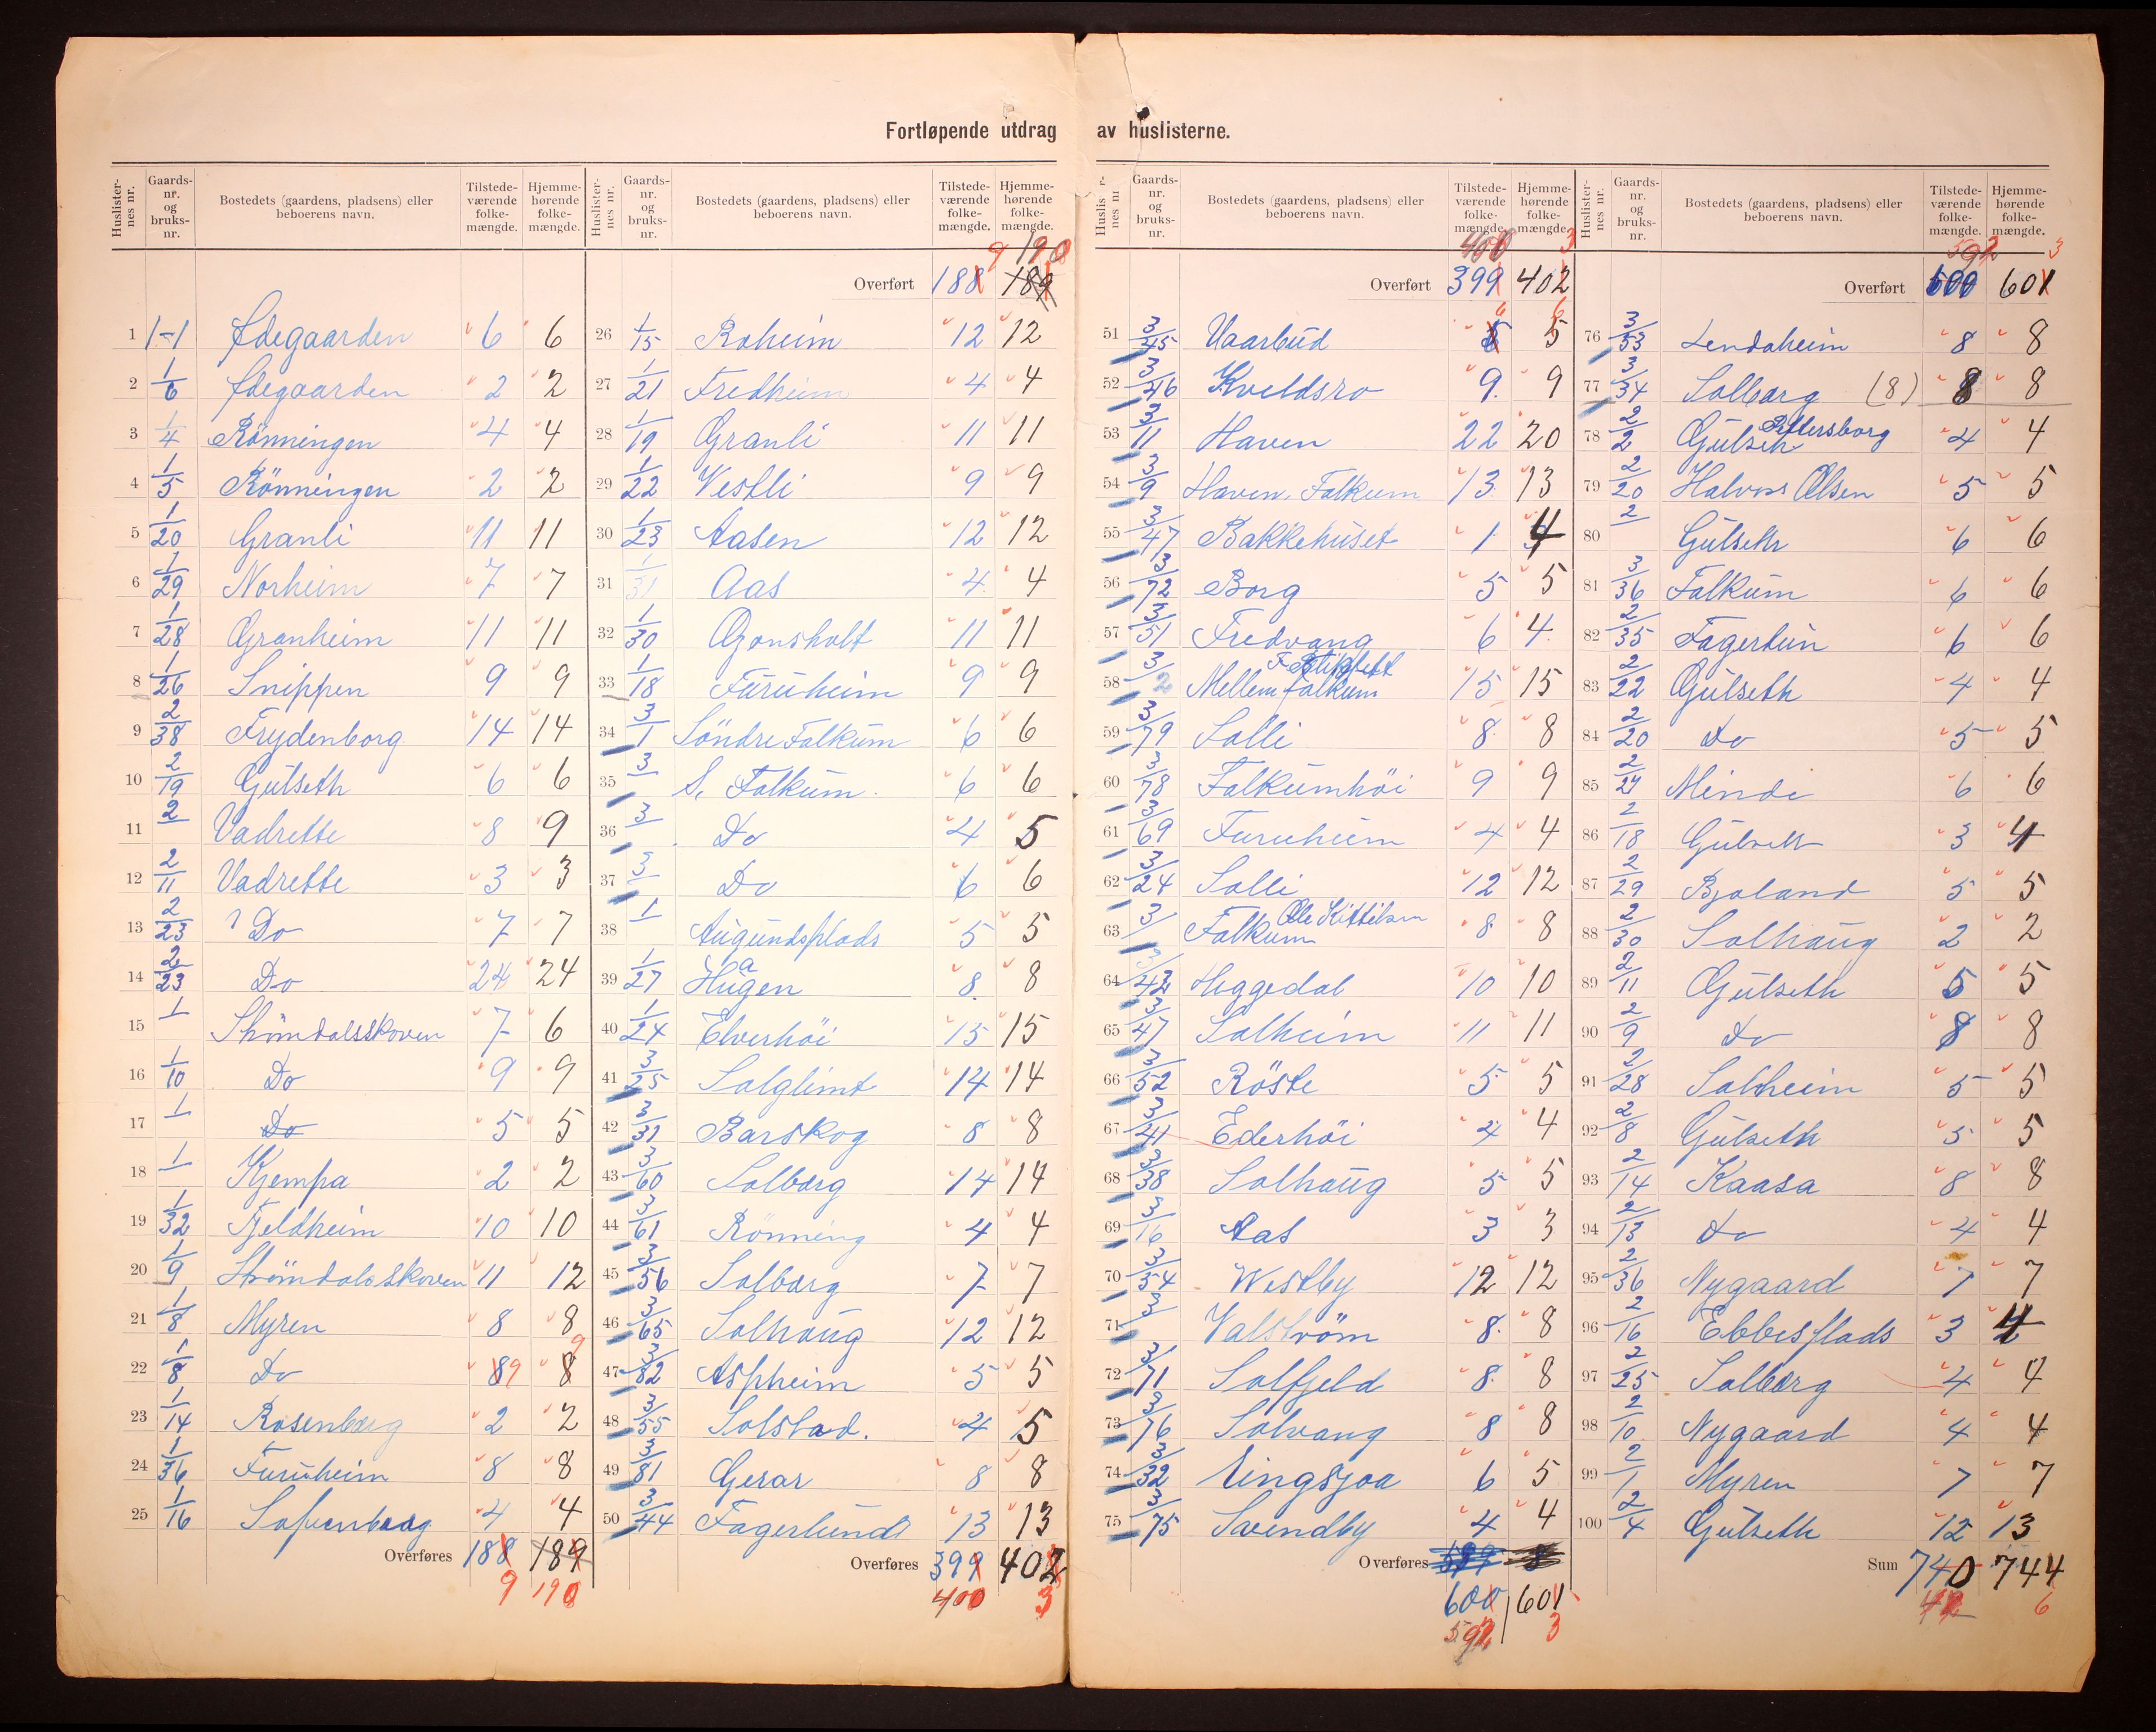 Fortløpende utdrag av huslisterne.
Huslister-nes nr. Gaards-nr. og bruks-nr. Bostedets (gaardens, pladsens) eller beboerens navn. Tilstede-værende folke-mængde. Hjemme-hørende folke-mængde.
1 1-1 Ødegaarden 6 6
2 1/6 Ødegaarden 2 2
3 1/4 Rönningen 4 4
4 1/5 Rönningen 2 2
5 1/20 Granli 11 11
6 1/29 Norheim 7 7
7 1/28 Granheim 11 11
8 1/26 Snippen 9 9
9 2/38 Frydenborg 14 14
10 2/19 Gulseth 6 6
11 2/ Vadrette 8 9
12 2/11 Vadrette 3 3
13 2/23 Do 7 7
14 2/23 Do 24 24
15 1/ Strömdalsskoven 7 6
16 1/10 Do 9 9
17 1/ Do 5 5
18 1/ Kjempa 2 2
19 1/32 Fjeldheim 10 10
20 1/9 Strömdalsskoven 11 12
21 1/8 Myren 8 8
22 1/8 Do 8 9 8 9
23 1/14 Rosenberg 2 2
24 1/36 Furuheim 8 8
25 1/16 4 4
Overføres 188 189
9 190
Huslister-nes nr. Gaards-nr. og bruks-nr. Bostedets (gaardens, pladsens) eller beboerens navn. Tilstede-værende folke-mængde. Hjemme-hørende folke-mængde.
9 190
Overført 188 189
26 1/15 Roheim 12 12
27 1/21 Fredheim 4 4
28 1/19 Granli 11 11
29 1/22 Vestli 9 9
30 1/23 Aasen 12 12
31 1/31 Aas 4 4
32 1/30 Gonsholt 11 11
33 1/18 Furuheim 9 9
34 3/1 Söndre Falkum 6 6
35 3/ S. Falkum 6 6
36 3/ Do 4 5
37 3/ Do 6 6
38 1/ Augundsplads 5 5
39 1/27 Hagen 8 8
40 1/24 Elverhöi 15 15
41 3/25 Solglimt 14 14
42 3/31 Barskog 8 8
43 3/60 Solberg 14 14
44 3/61 Rönning 4 4
45 3/56 Solberg 7 7
46 3/65 Solhaug 12 12
47 3/82 Aspheim 5 5
48 3/55 Solstad. 4 5
49 3/81 Gerar 8 8
50 3/44 Fagerlund 13 13
Overføres 399 402
400 3
Gaards-nr. og bruks-nr. Bostedets (gaardens, pladsens) eller beboerens navn. Tilstede-værende folke-mængde. Hjemme-hørende folke-mængde.
400 3
Overført 399 402
51 3/45 Vaarbud 6 5 6
52 3/46 Kveldsro 9 9
53 3/11 Haven 22 20
54 3/9 Haven, Falkum 13 13
55 3/47 Bakkehuset 1 4
56 3/72 Borg 5 5
57 3/51 Fredvang 6 4
58 3/2 Mellem falkum 15 15
59 3/79 Solli 8 8
60 3/78 Falkumhöi 9 9
61 3/69 Furuheim 4 4
62 3/24 Solli 12 12
63 3/ Falkum Ole Kittilsen 8 8
64 3/42 Heggedal 10 10
65 3/47 Solheim 11 11
66 3/52 Röste 5 5
67 3/41 Ederhöi 4 4
68 3/38 Solhaug 5 5
69 3/16 Aas 3 3
70 3/54 Westby 12 12
71 3/ Valström 8 8
72 3/71 Solfjeld 8 8
73 3/76 Solvang 8 8
74 3/32 6 5
75 3/75 Svendby 4 4
Overføres
600 601
592 3
Huslister-nes nr. Gaards-nr. og bruks-nr. Bostedets (gaardens, pladsens) eller beboerens navn. Tilstede-værende folke-mængde. Hjemme-hørende folke-mængde.
592 3
Overført 600 601
76 3/53 Lendaheim 8 8
77 3/34 Solberg (8) 8 8
78 2/2 Gulseth 4 4
79 2/20 Halvor Olsen 5 5
80 2/ Gulseth 6 6
81 3/36 Falkum 6 6
82 2/35 Fagertun 6 6
83 2/22 Gulseth 4 4
84 2/20 Do 5 5
85 2/24 Minde 6 6
86 2/18 Gulseth 3 4
87 2/29 Bjoland 5 5
88 2/30 Solhaug 2 2
89 2/11 Gulseth 5 5
90 2/9 Do 8 8
91 2/28 Solheim 5 5
92 2/8 Gulseth 5 5
93 2/14 Kaasa 8 8
94 2/13 Do 4 4
95 2/36 Nygaard 7 7
96 2/16 Ebbesplads 3 4
97 2/25 Solberg 4 4
98 2/10 Nygaard 4 4
99 2/1 Myren 7 7
100 2/4 Gulseth 12 13
Sum 740 744
42 6